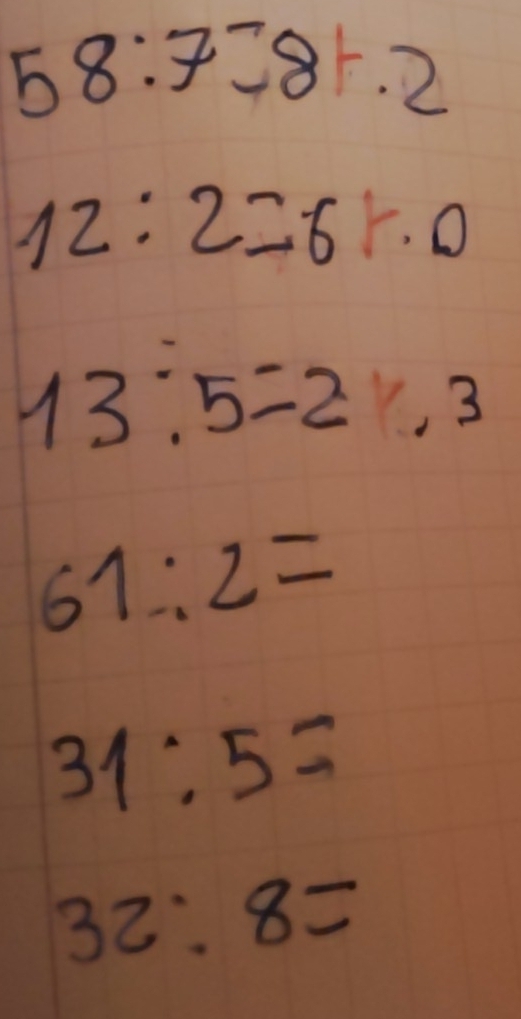 58:7=8r.2
12:2=6r.0
13:5=2r.3
61:2=
31:5=
32:8=